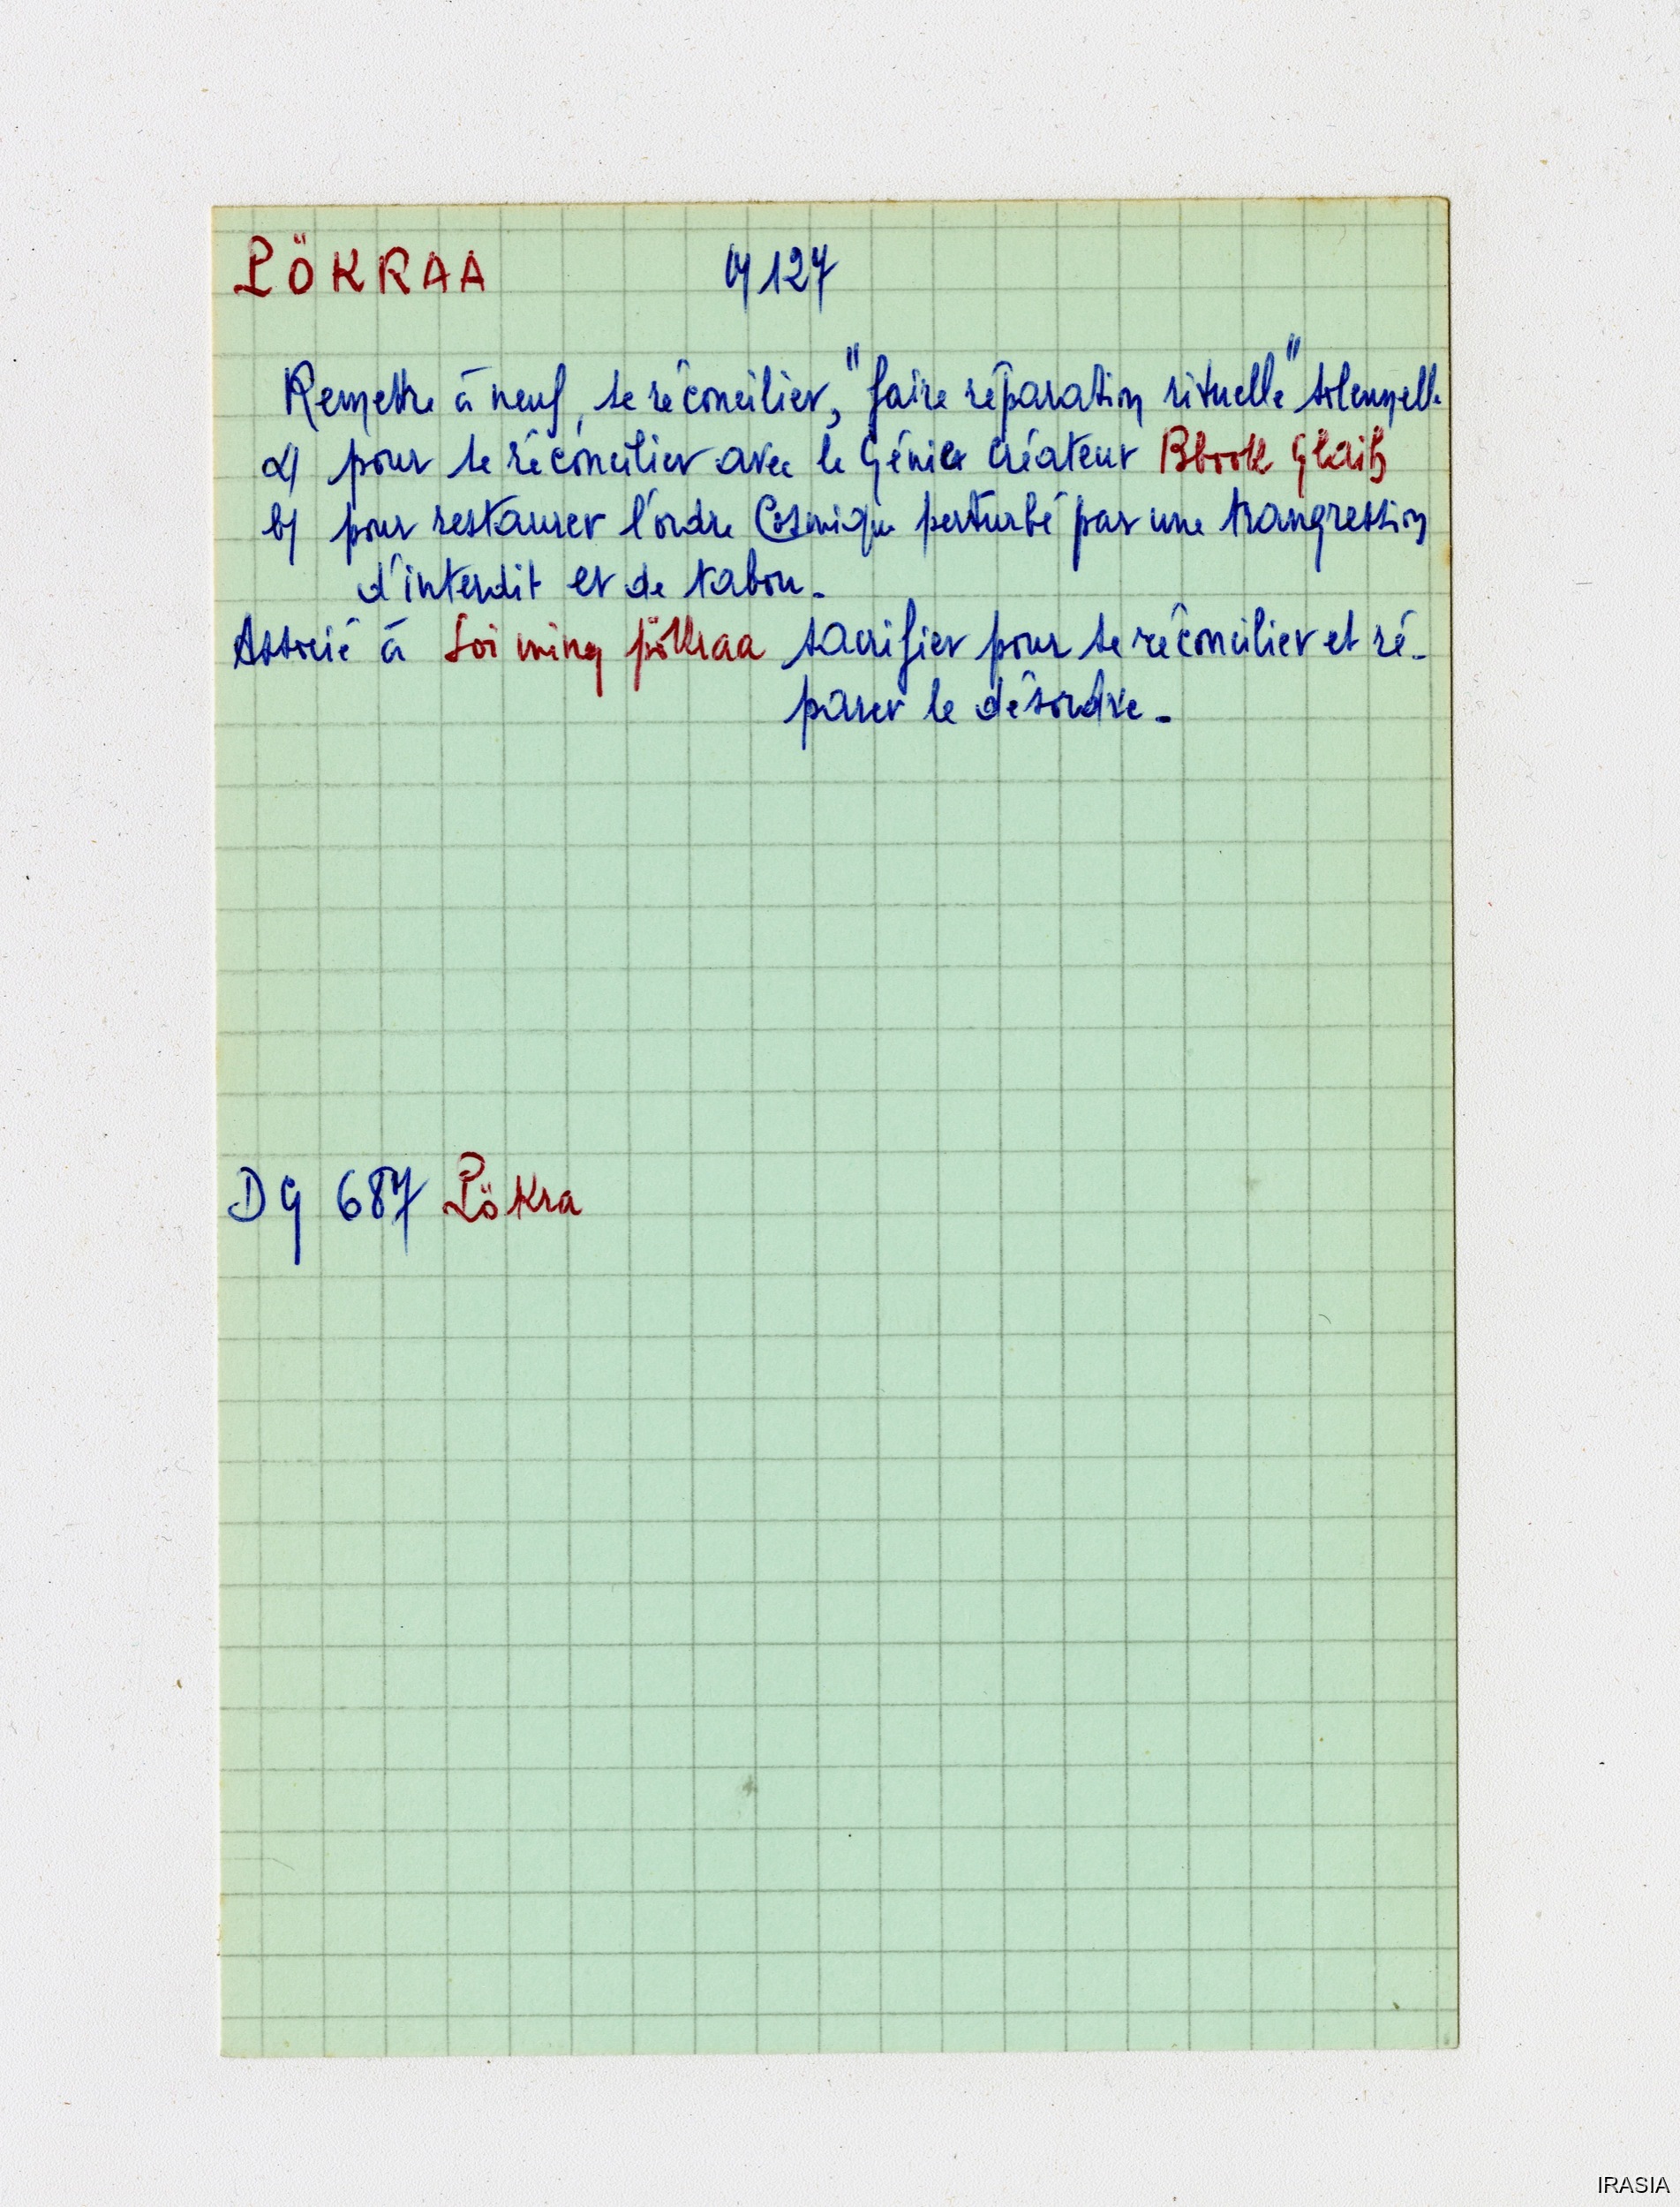 PÖKRAA 4127
Remettre à neuf, se réconcilier, "faire réparation rituelle" solennelle
a) pour se réconcilier avec le Génie créateur Bbook Glaih
b) pour restaurer l'ordre Cosmique perturbé par une trangression
d'interdit et de tabou.
Associé à Soi ming pökraa sacrifier pour se réconcilier et ré-
parer le désordre.
DG 687 Pökra
IRASIA